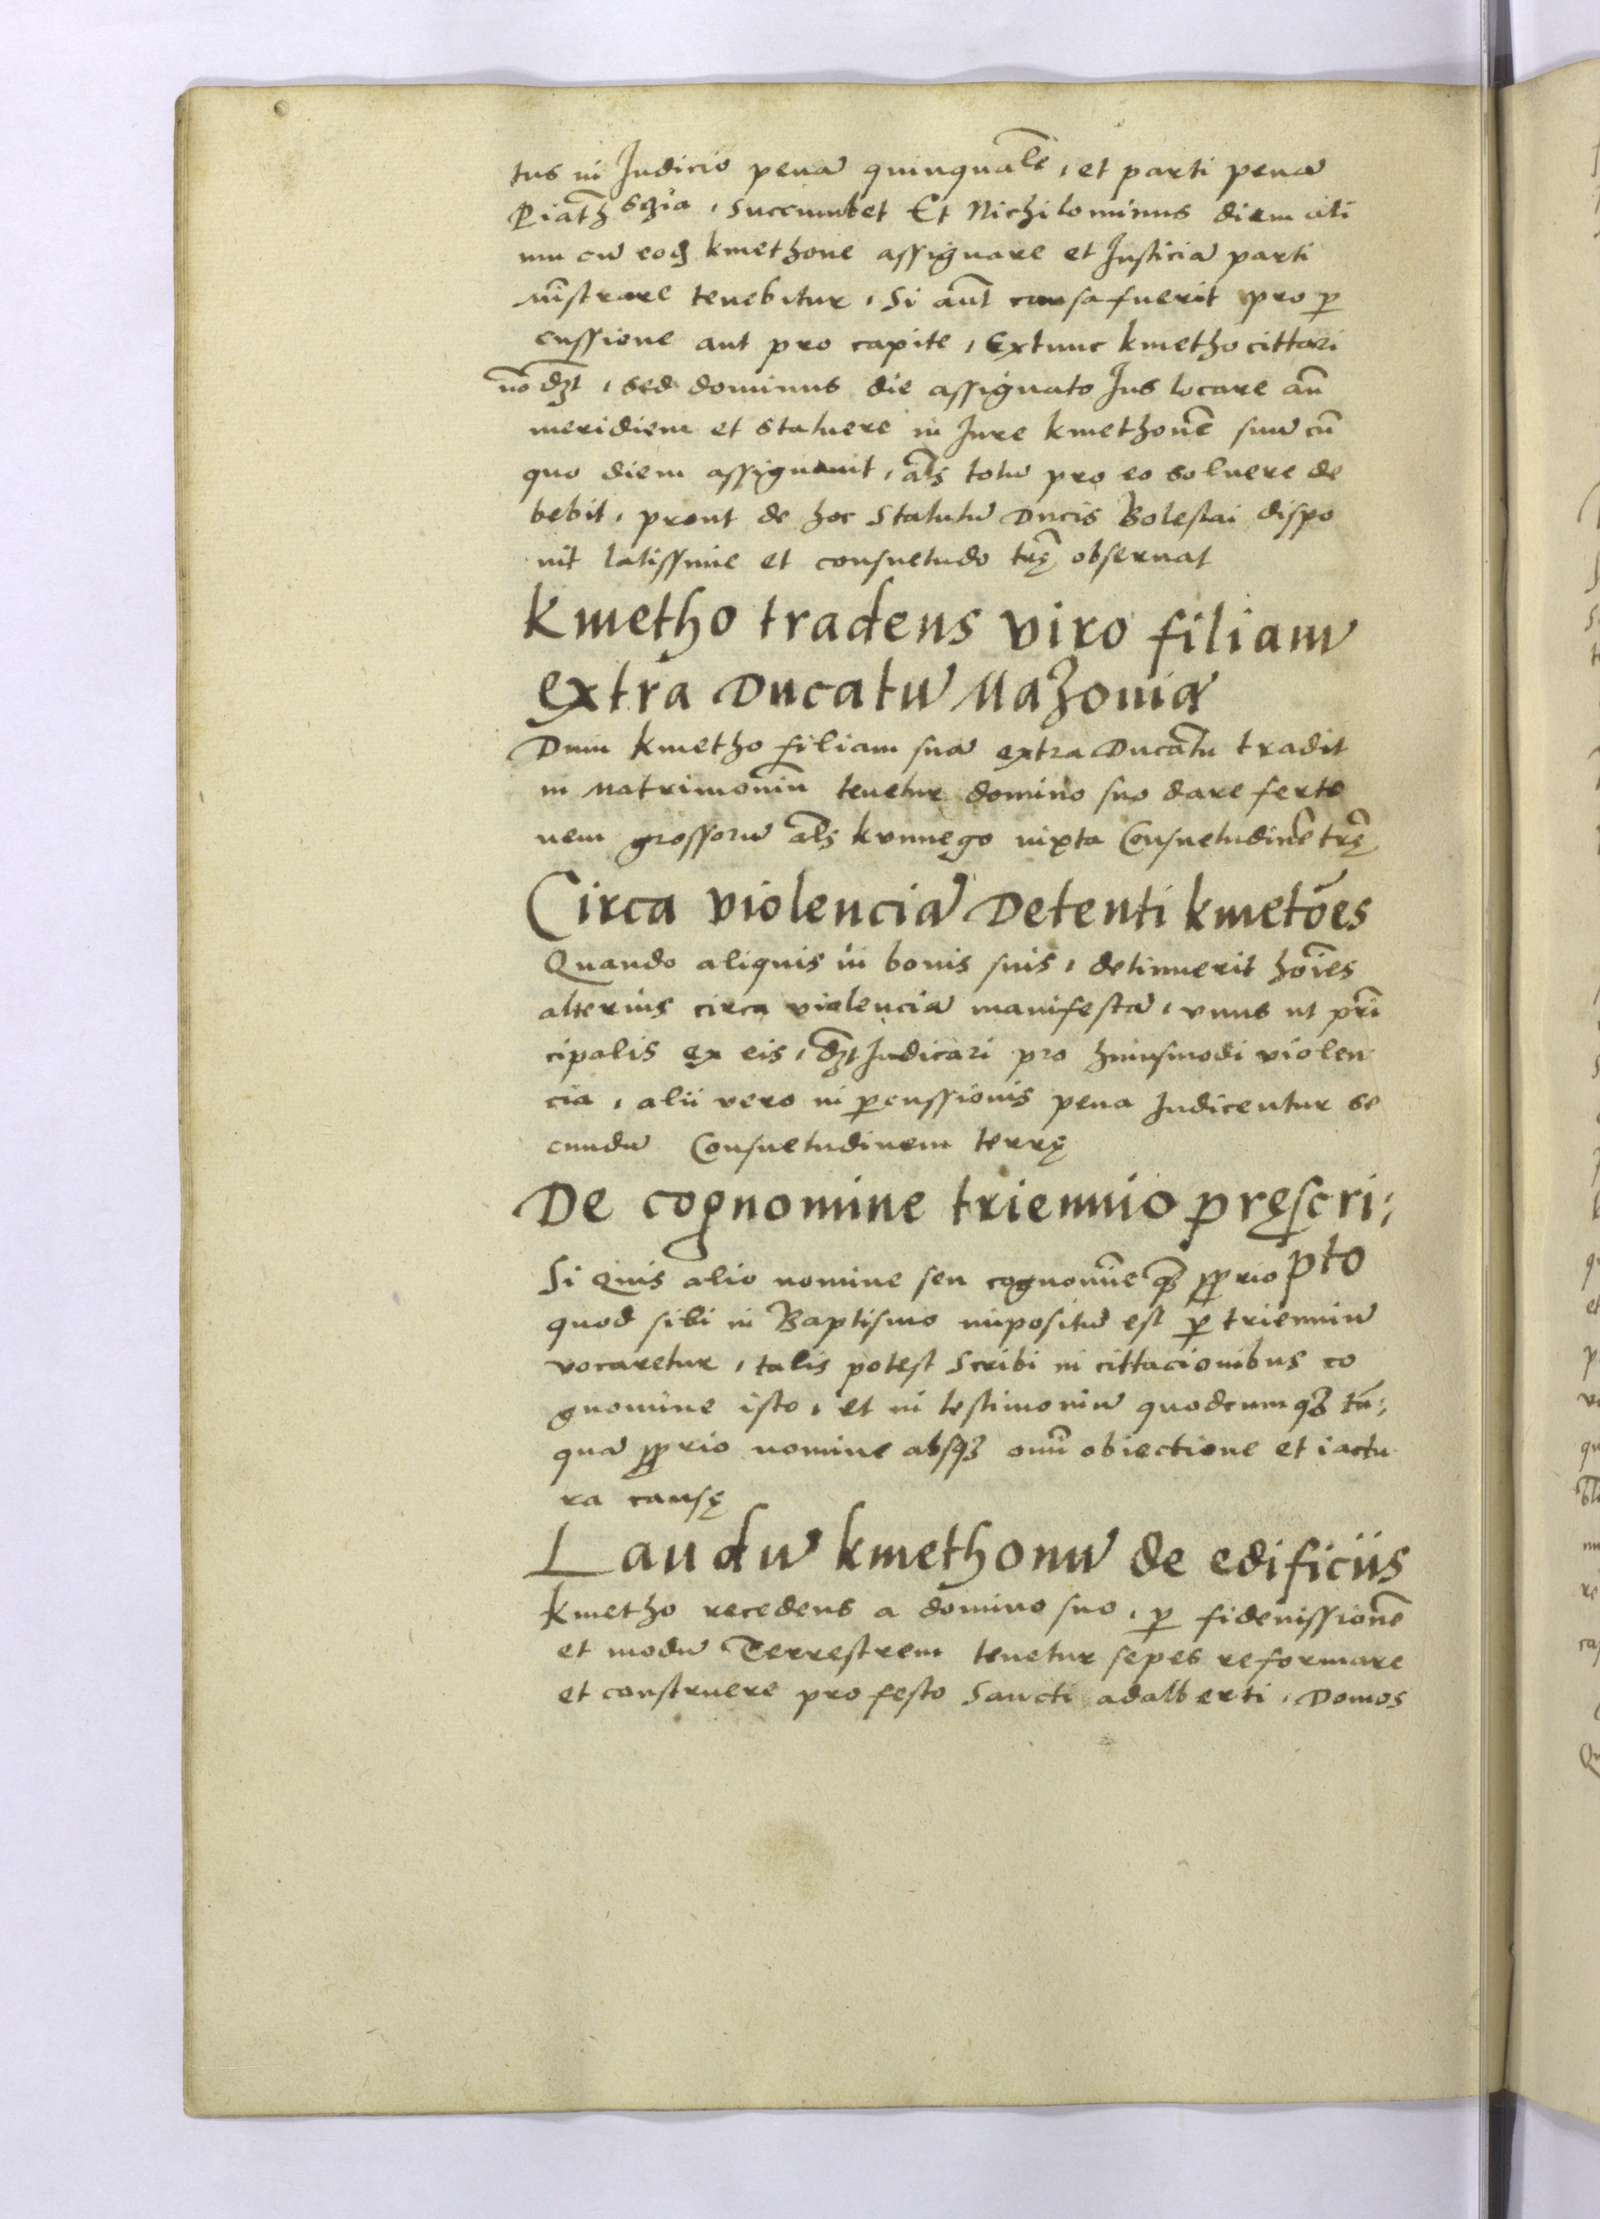 tus in Judicio penā quinquale͂, et parti penā
Piat͂h sgia, Succumbet Et Nichilominus diem ali
um cū eod kmethone assignare et Justiciā parti
mīstrare tenebitur, Si aūt causa fuerit pro p
cussione aut pro capite, Extunc kmetho cittari
nō dꝫt, sed dominus die assignato Jus locare an̄
meridiem et Statuere in Jure kmethonē suū cū
quo diem assignauit, al͂s totū pro eo soluere de
bebit, prout de hoc Statutū Ducis Boleslai dispo
nit latissime et consuetudo tr̄ę obseruat
Kmetho tradens viro filiam
extra Ducatū Mazouiæ
Dum kmetho filiam suā extra Ducatū tradit
in Matrimoniū tenetur domino suo dare ferto
nem grossorū al͂s kunnego iuxta Consuetudinē tr̄ę
Circa violenciā Detenti kmetōes
Quando aliquis in bonis suis, detinuerit hoīes
alterius circa violenciā manifestā, vnus ut prī
cipalis ex eis, dꝫt Judicari pro huiusmodi violen
cia, alii vero in ꝑcussionis pena Judicentur se
cundū Consuetudinem terrę
De cognomine triennio pręscri;
pto
Si Quis alio nomine seu cognomīe qꝫ ꝓprio
quod sibi in Baptismo impositū est ꝑ trienniū
vocaretur, talis potest Scribi in cittacionibus co
gnomine isto, et in testimoniū quodcumqꝫ tā;
quā ꝓprio nomine absqꝫ omī obiectione et iactu
ra causę
Laudū kmethonū de edificiis
Kmetho recedens a domino suo, ꝑ fideiussionē
et modū Terrestrem tenetur sepes reformare
et construere pro festo Sancti adalberti, Domos